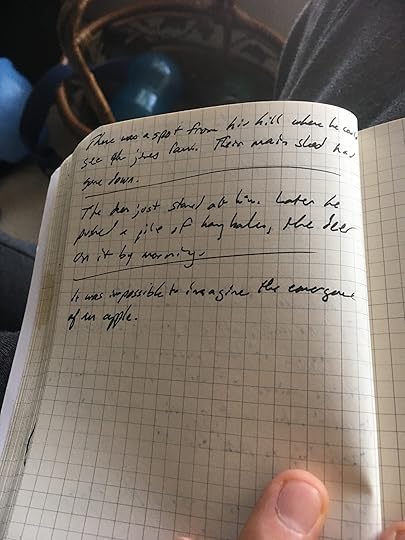 There was a spot from his hill where he could
see the jones farm. Their main shed had
gone down.
The deer just stared at him. Later he
pushed a pile of hay bales, the deer
on it by morning.
It was impossible to imagine the emergence
of an apple.